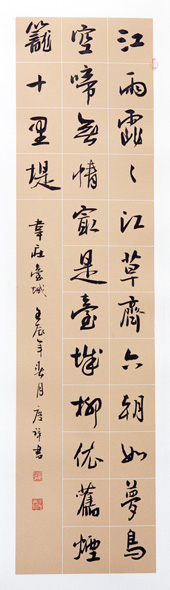 江雨霏〻江草齊六朝如夢鳥
空啼無情㝡是臺城柳依舊煙
籠十里堤
韋莊臺城 壬辰年月書